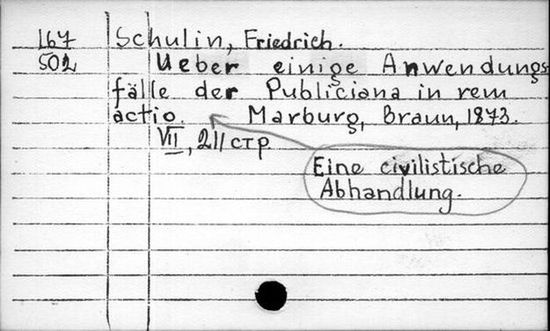 167 Schulin, Friedrich.
502 Ueber einige Anwendungs-
fälle der Publiciana in rem
actio. Marburg, Braun, 1873.
VII, 211 стр
Eine civilistische
Abhandlung.